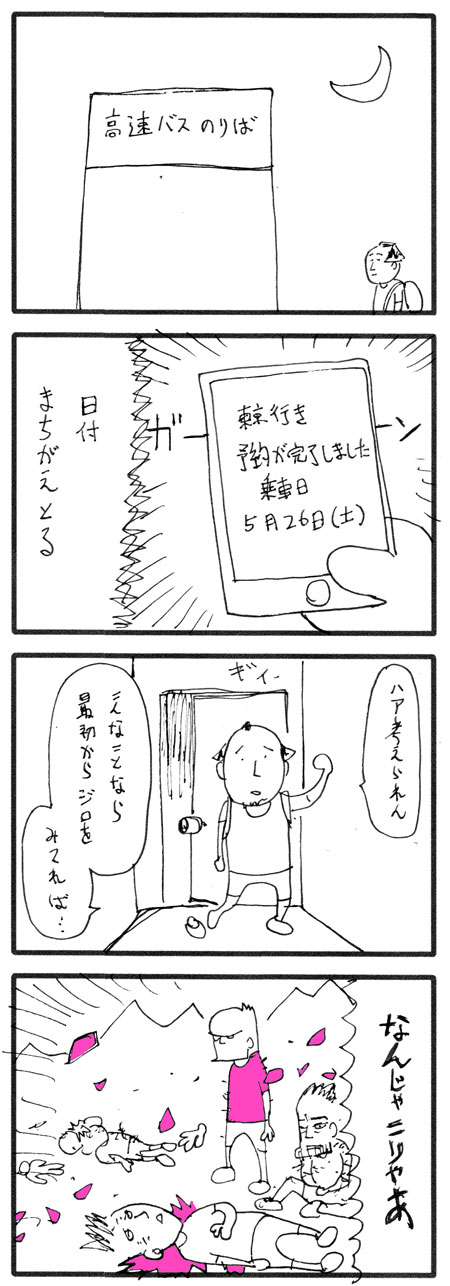 高速バスのりば
ガーーン
東京行き
予約が完了しました
乗車日
5月26日(土)
日付
まちがえとる
ハア考えられん
ギィ…
こんなことなら
最初からジロを
みてれば…
なんじゃこりゃあ